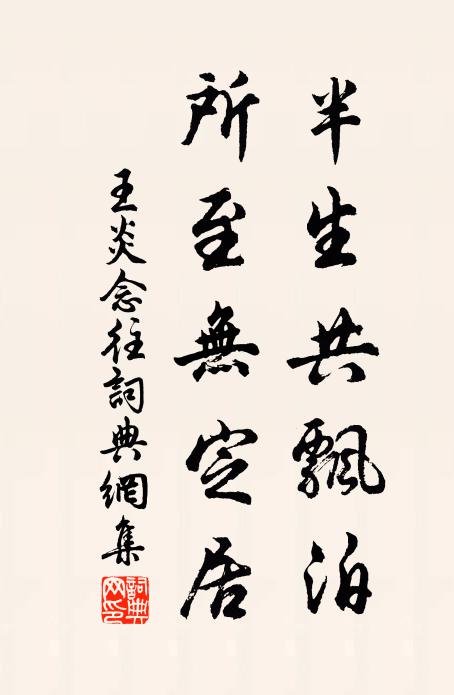 半生共飄泊
所至無定居
王炎念往詞典網集
詞典網印